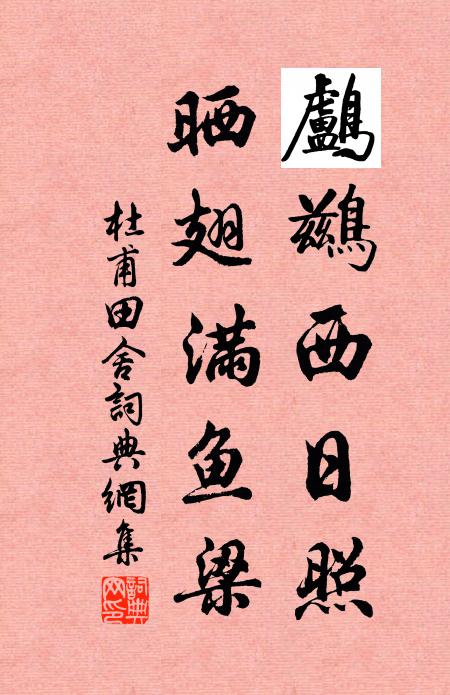 鸕鷀西日照
晒翅满鱼梁
杜甫田舍詞典網集
詞典網印